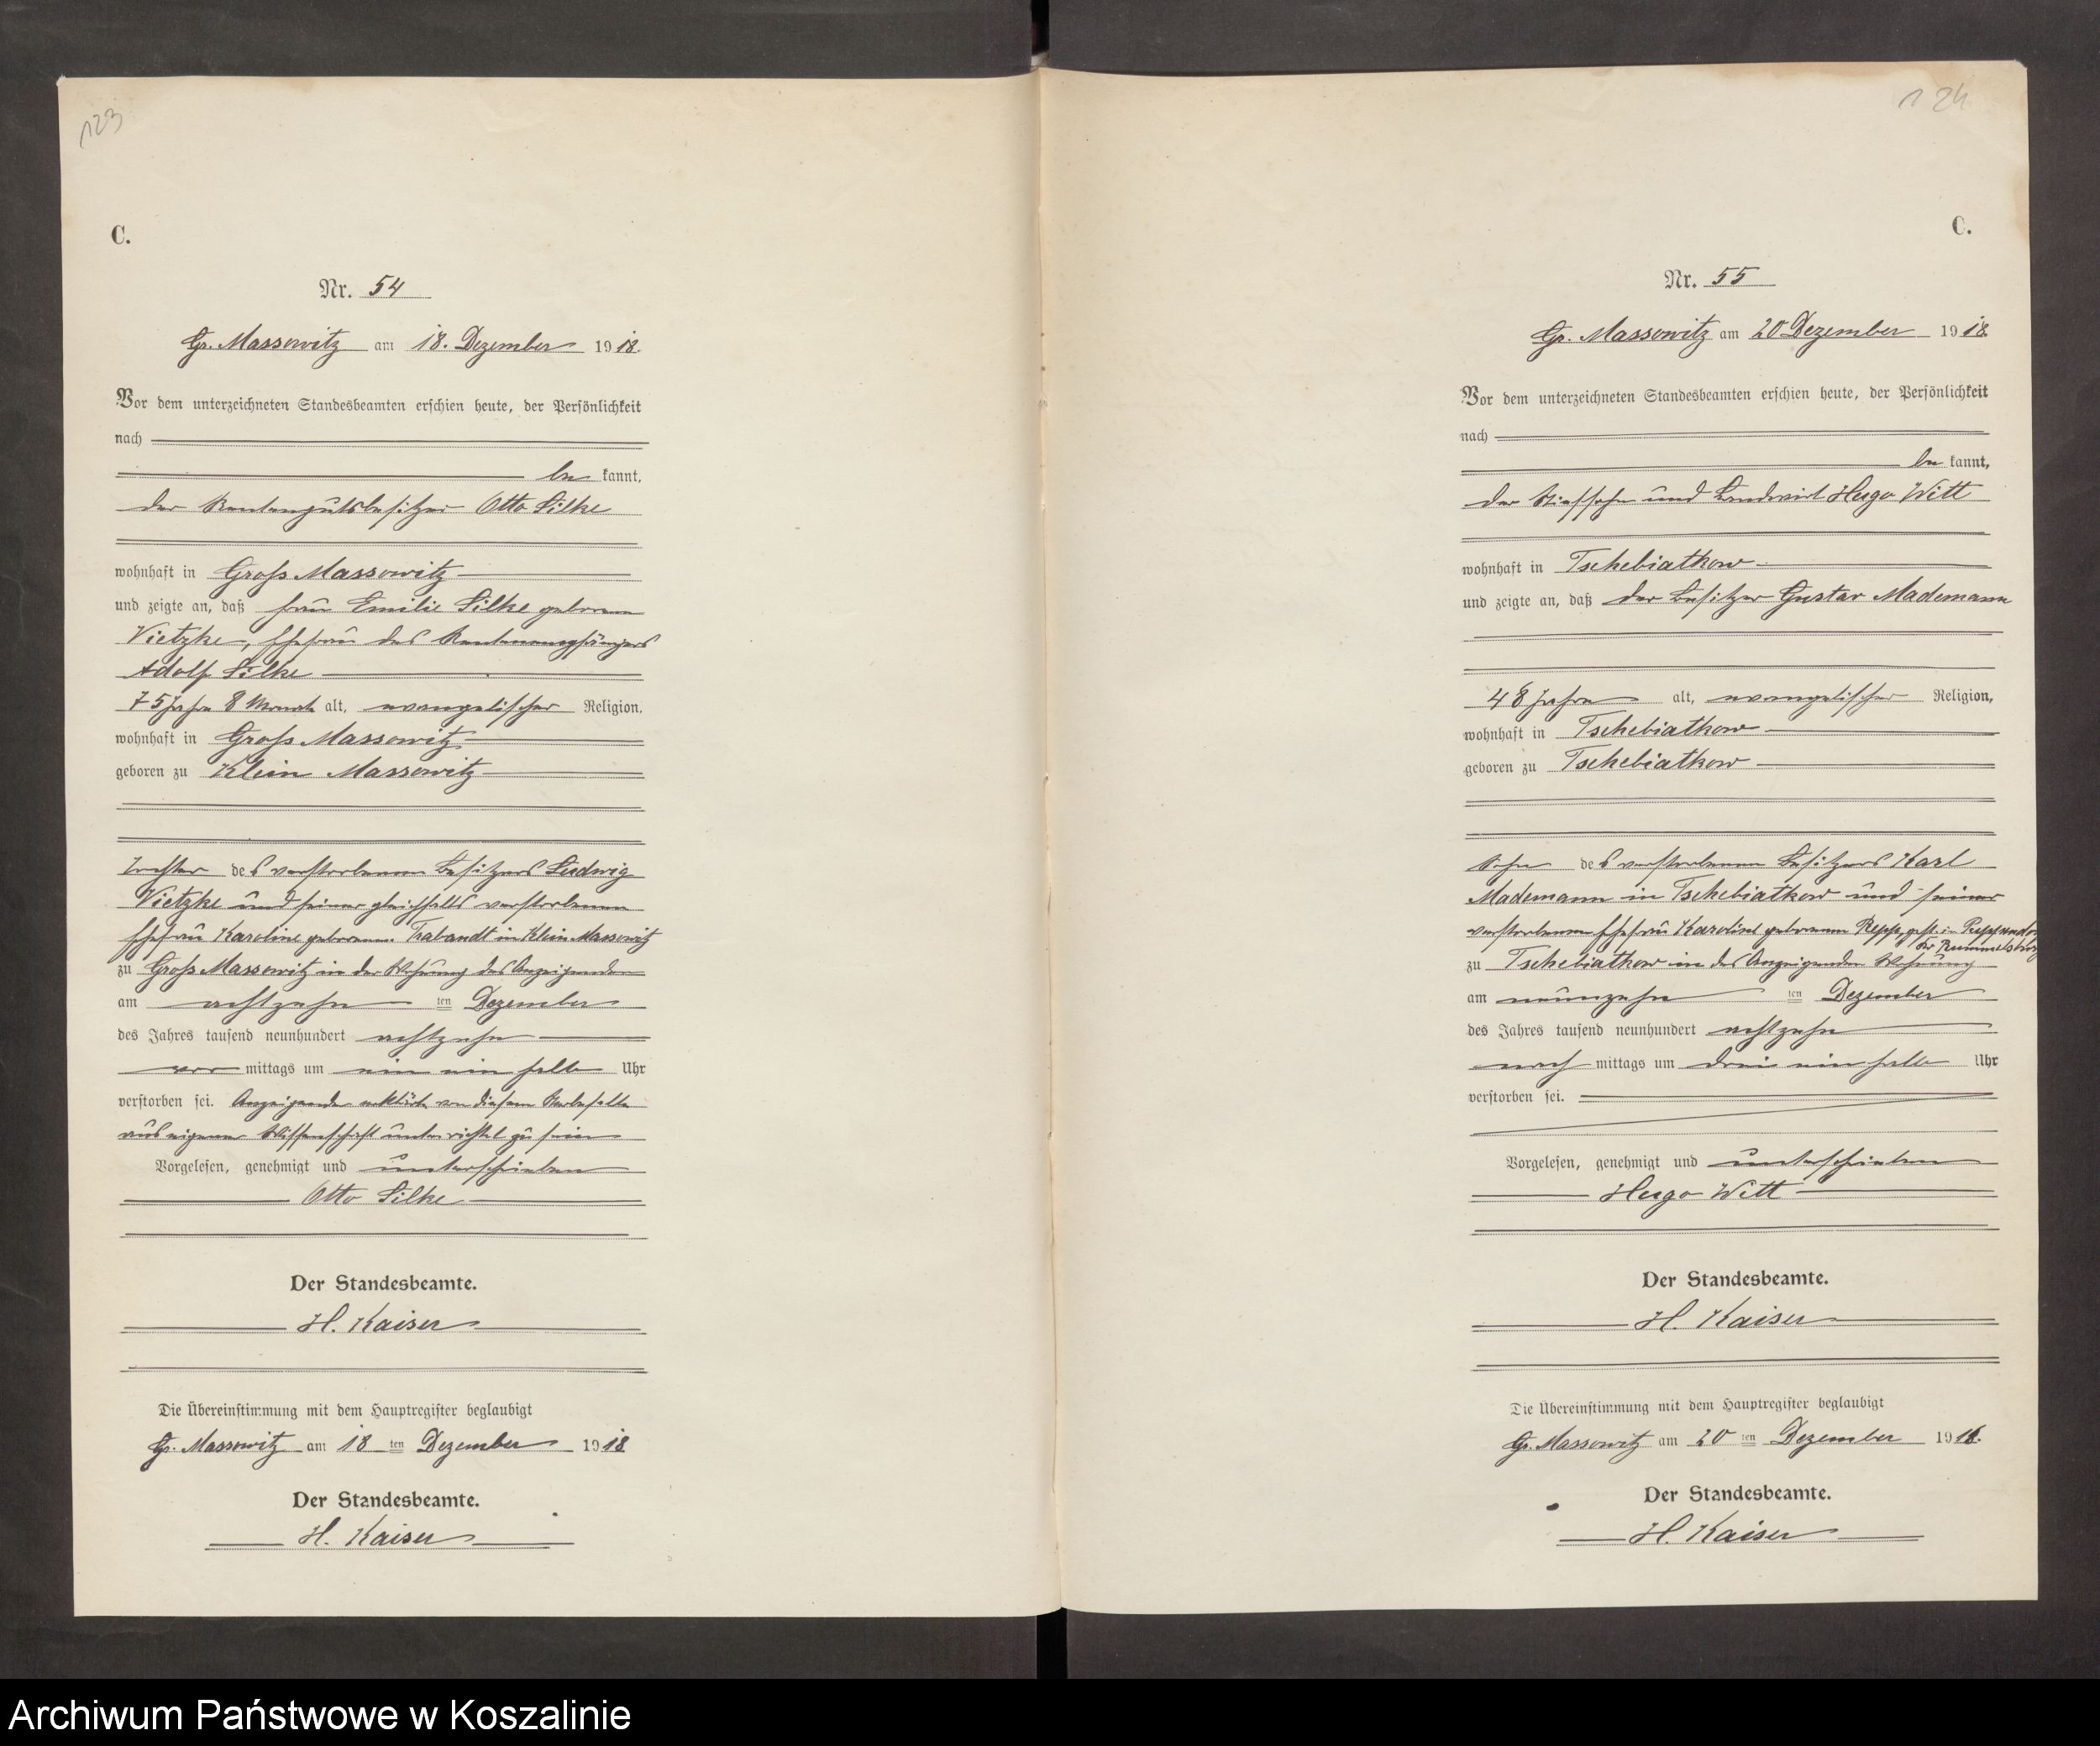 123
C.
Nr. 54
Gr. Massowitz am 18. Dezember 1918.
Vor dem unterzeichneten Standesbeamten erschien heute, der Persönlichkeit
nach
be kannt,
der Rentengutsbesitzer Otto Silke
wohnhaft in Groß Massowitz
und zeigte an, daß Frau Emilie Silke geborene
Vietzke, Ehefrau des Rentenempfängers
Adolf Silke
75 Jahre 8 Monate alt, evangelischer Religion,
wohnhaft in Groß Massowitz
geboren zu Klein Massowitz
Tochter des verstorbenen Besitzers Ludwig
Vietzke und seiner gleichfalls verstorbenen
Ehefrau Karoline geborenen Trabandt in Klein Massowitz
zu Groß Massowitz in der Wohnung des Anzeigenden
am achtzehn ten Dezember
des Jahres tausend neunhundert achtzehn
vor mittags um ein ein halb Uhr
verstorben sei. Anzeigender erklärte von diesem Sterbefalle
aus eigener Wissenschaft unterrichtet zu sein
Vorgelesen, genehmigt und unterschrieben
Otto Silke
Der Standesbeamte.
H. Kaiser
Die Übereinstimmung mit dem Hauptregister beglaubigt
Gr. Massowitz am 18 ten Dezember 1918
Der Standesbeamte.
H. Kaiser
124
C.
Nr. 55
Gr. Massowitz am 20 Dezember 1918.
Vor dem unterzeichneten Standesbeamten erschien heute, der Persönlichkeit
nach
be kannt,
der Stiefsohn und Landwirt Hugo Witt
wohnhaft in Tschebiatkow
und zeigte an, daß der Besitzer Gustav Mademann
48 Jahre alt, evangelischer Religion,
wohnhaft in Tschebiatkow
geboren zu Tschebiatkow
Sohn des verstorbenen Besitzers Karl
Mademann in Tschebiatkow und seiner
verstorbenen Ehefrau Karoline geborenen Repp, gest. in
Kr Rummelsburg
zu Tschebiatkow in des Anzeigenden Wohnung
am neunzehn ten Dezember
des Jahres tausend neunhundert achtzehn
nach mittags um drei ein halb Uhr
verstorben sei.
Vorgelesen, genehmigt und unterschrieben
Hugo Witt
Der Standesbeamte.
H. Kaiser
Die Übereinstimmung mit dem Hauptregister beglaubigt
Gr. Massowitz am 20 ten Dezember 1918.
Der Standesbeamte.
H. Kaiser
Archiwum Państwowe w Koszalinie